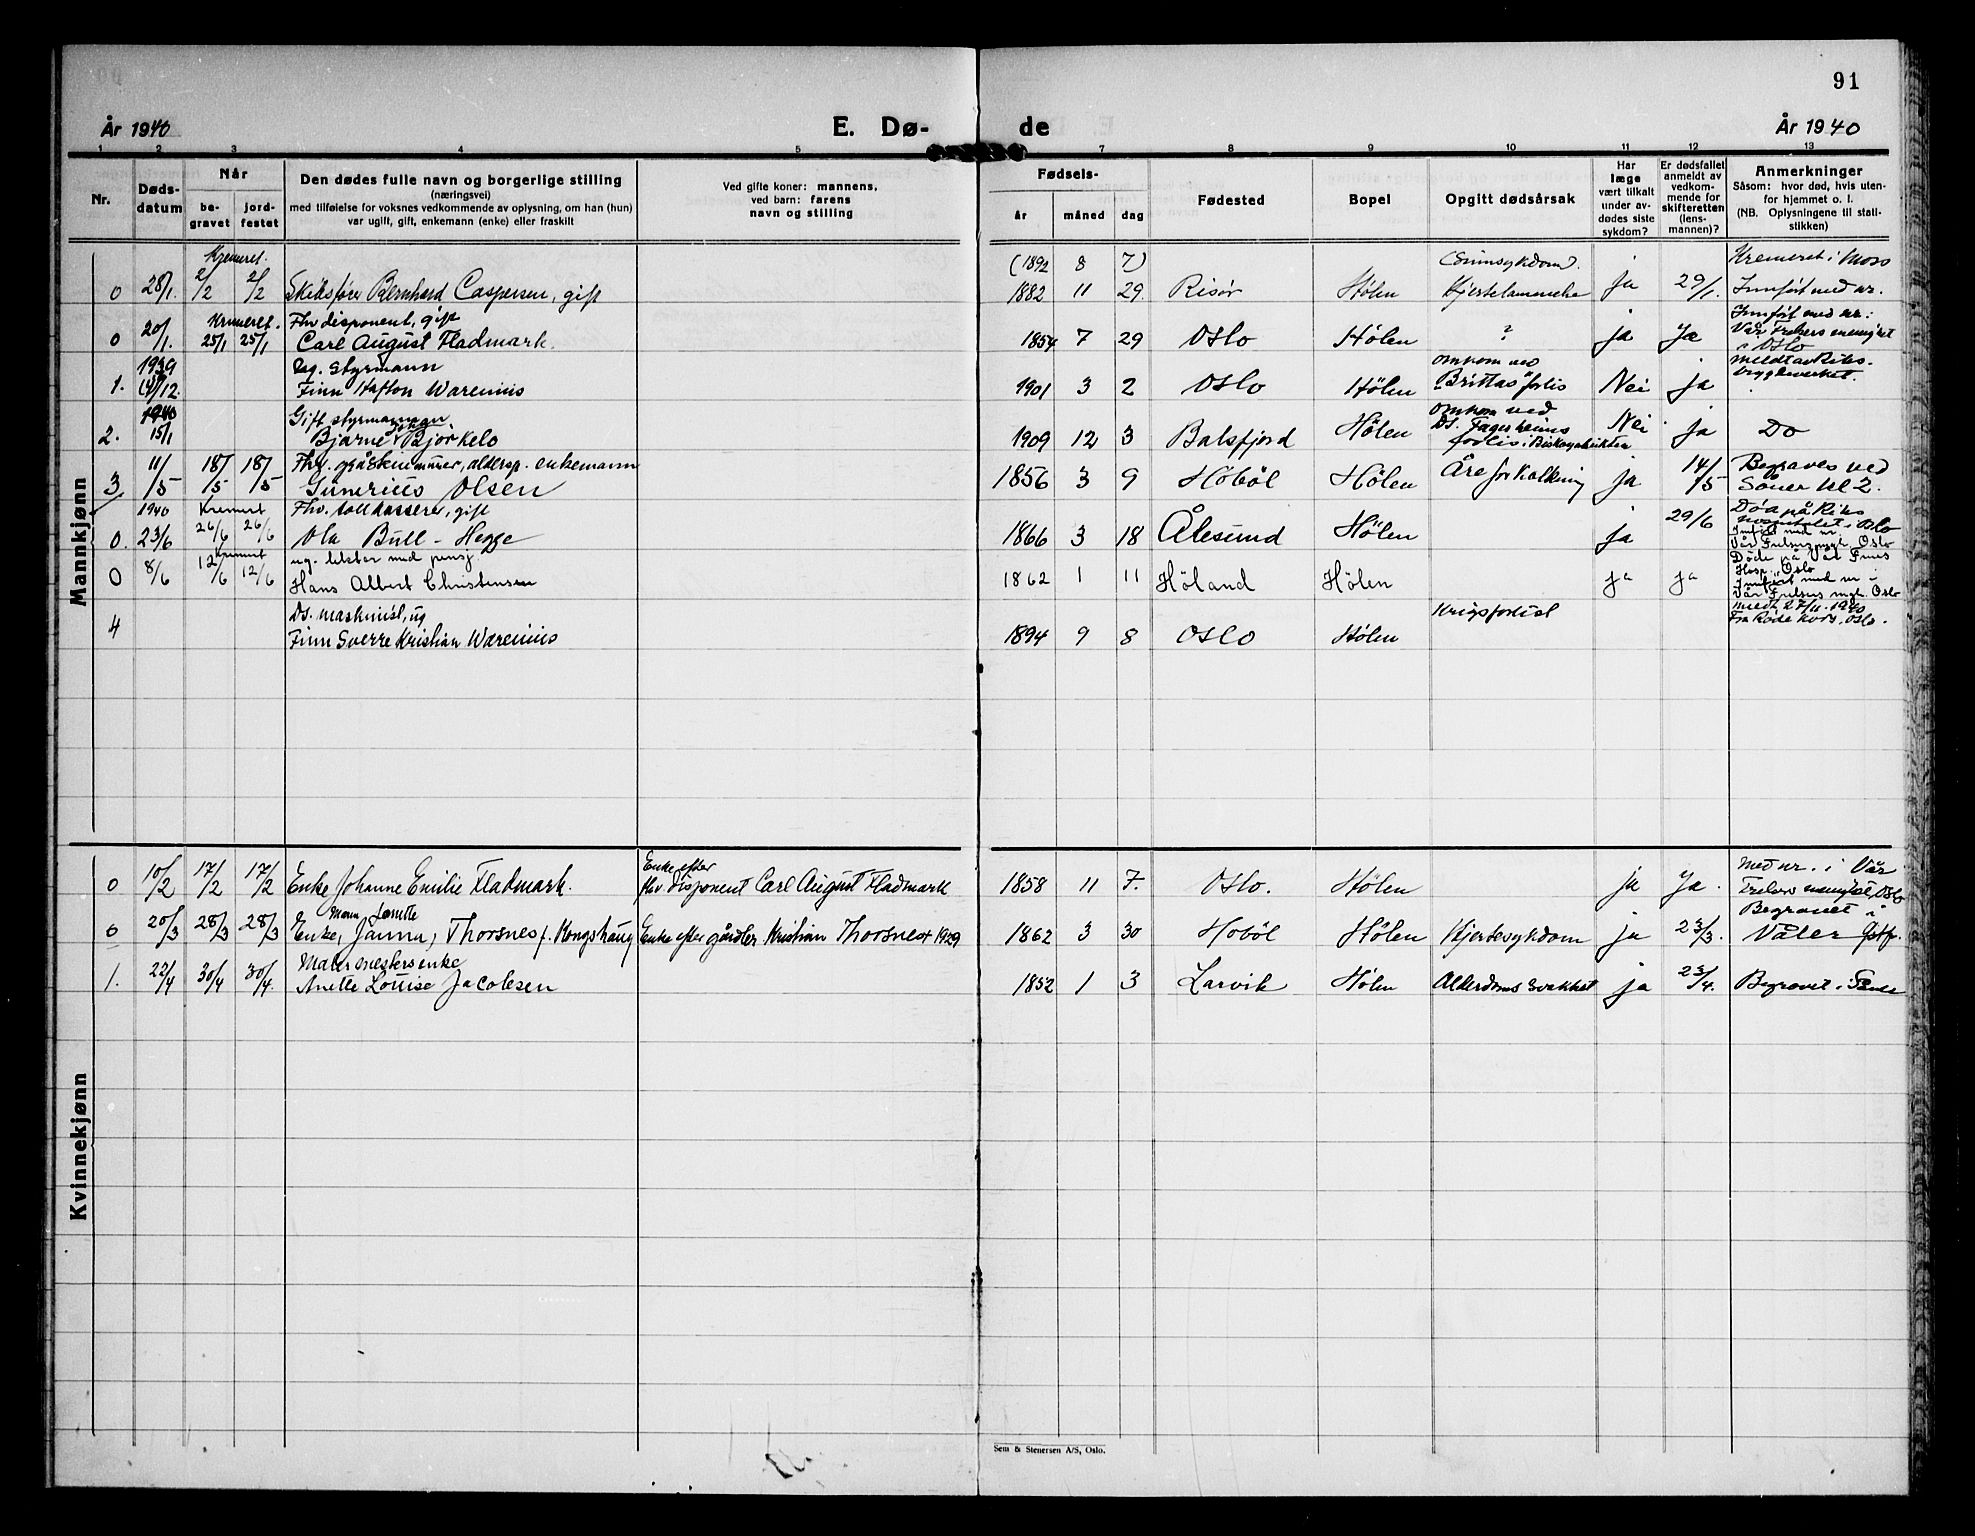 91
År 1940
E. Dø-
de
År 1940
1 2 3 4 5 7 8 9 10 11 12 13
Nr.
Døds-
datum
Når
be-
gravet
jord-
festet
Den dødes fulle navn og borgerlige stilling
(næringsvei)
med tilføielse for voksnes vedkommende av oplysning, om han (hun)
var ugift, gift, enkemann (enke) eller fraskilt
Ved gifte koner: mannens,
ved barn: farens
navn og stilling
Fødsels-
år måned dag
Fødested
Bopel
Opgitt dødsårsak
Har
læge
vært tilkalt
under av-
dødes siste
sykdom?
Er dødsfallet
anmeldt av
vedkom-
mende for
skifteretten
(lens-
mannen)?
Anmerkninger
Såsom: hvor død, hvis uten-
for hjemmet o. l.
(NB. Oplysningene til stati-
stikken)
Mankjønn
Kremeret. (1892 8 7) (Sinnsykdom). Kremeret i Moss
0 28/1. 2/2 2/2 Skibsfører Bernhard Caspersen, gift 1882 11 29. Risør Hølen Hjertelammelse ja 29/1. Innført med nr.
Kremeret. Fhv disponent, gift Innført med nr:
0 20/1. 25/1 25/1 Carl August Fladmark. 1854 7 29 Oslo Hølen ? ja Ja Vår Frelsers menighet
i Oslo
1939 Ug. styrmann omkom ved meldt av Riks-
1. 12. Finn Hafton Warenius 1901 3 2 Oslo Hølen "Brittas" forlis Nei ja trygdeverket.
1940 Gift styrmann omkom ved
2. 15/1 Bjarne Bjørkelo 1909 12 3 Balsfjord Hølen DS. Fagerheims Nei ja Do
forlis i Biskayabukten
Fhv. gråsteinmurer, aldersp. enkemann Begraves ved
3 11/5 18/5 18/5 Gunerius Olsen 1856 3 9 Hobøl Hølen Åreforkalkning ja 14/5 Såner kl 2.
1940 Kremert Fhv. tollkasserer, gift Død på Riks
0. 23/6 26/6 26/6 Ola Bull-Hegge 1866 3 18 Ålesund Hølen ja 29/6 hospitalet i Oslo
Innført med nr
Vår Frelsers mgt. Oslo
kremert ug. med pensj Døde på Vår Frues
0 8/6 12/6 12/6 Hans Albert Christensen 1862 1 11 Høland Hølen ja ja Hosp. Oslo
Innført med nr i
Vår Frelsers mgt. Oslo
Ds. maskinist, ug krigsforlist meldt 27/11-1940
4 Finn Sverre Kristian Warenius 1894 9 8 Oslo Hølen Fra Røde Kors, Oslo.
Kvinnekjønn
Enke efter Med nr. i Vår
0 10/2 17/2 17/2 Enke Johanne Emilie Fladmark. fhv disponent Carl August Fladmark 1858 11 7. Oslo. Hølen ja Ja. Frelsers menighet, Oslo
Begravet i
0 20/3 28/3 28/3 Enke, Janna, Thorsnes f. Kongshaug Enke efter gårdbr Kristian Thorsnes + 1929 1862 3 30 Hobøl Hølen Hjertesykdom ja 23/3. Våler Østf.
Malermestersenke
1. 22/4 30/4 30/4. Anette Louise Jacobsen 1852 1 3 Larvik Hølen Alderdomssvakhet ja 23/4. Begravet i
Sem & Stenersen A/S, Oslo.